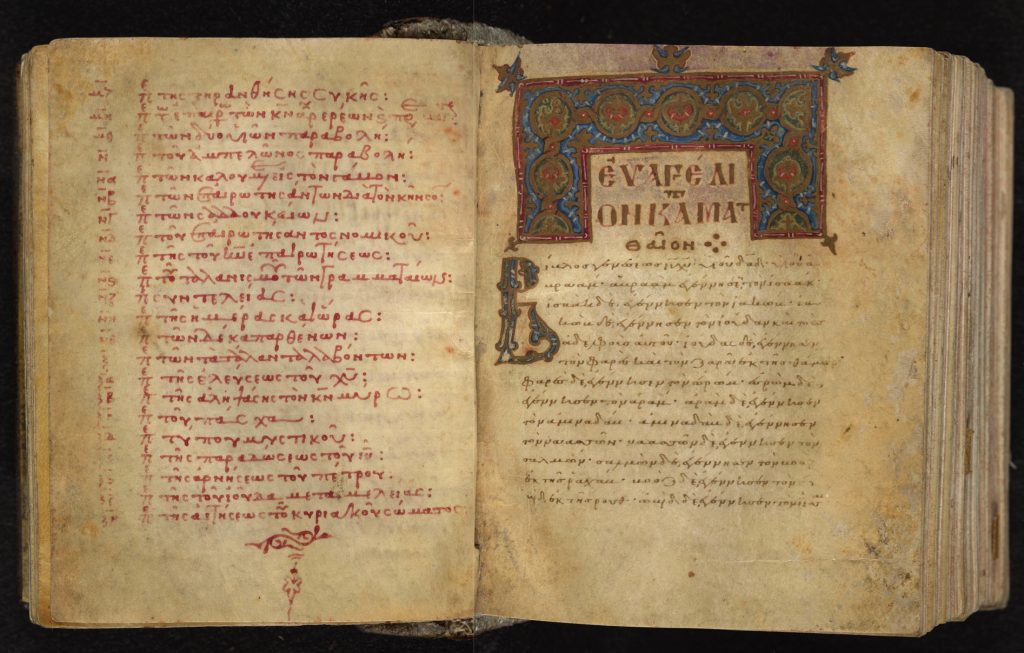 τῆς ξηρανθήσης συκῆς:
τῶν δύο υἱῶν παραβολή:
τοῦ ἀμπελῶνος παραβολή:
τῶν καλουμένων εἰς τὸν γάμον:
τῶν ἐπερωτησάντων διὰ τὸν κῆνσον:
τῶν σαδδουκαίων:
τοῦ ἐπερωτήσαντος νομικοῦ:
τῆς τοῦ κυ ἐπερωτήσεως:
τοῦ ταλανισμοῦ τῶν γραμματαίων:
συντελείας:
τῆς ἡμέρας καὶ ὥρας:
τῶν δέκα παρθένων:
τῶν τὰ τάλαντα λαβόντων:
τῆς ἐλεύσεως τοῦ χυ:
τῆς ἀληψάσης τὸν κν μύρω
τοῦ πάσχα:
τύπου μυστικοῦ:
τῆς παραδώσεως τοῦ ιυ:
τῆς ἀρνήσεως τοῦ πέτρου.
τῆς τοῦ ἰούδα μεταμελείας:
τῆς αἰτήσεως τοῦ κυριακοῦ σώματος
ΕΥΑΓΓΕΛΙ
ΟΝ ΚΑΤΑ ΜΑΤ
ΘΑΙΟΝ
Βίβλος γενέσεως ιυ χυ υἱοῦ δαδ υἱοῦ ἀ
βραάμ. ἀβραὰμ ἐγέννησε τὸν ἰσαάκ
ἰσαὰκ δὲ ἐγέννησεν τὸν ἰακώβ. ἰα
κὼβ δὲ ἐγέννησεν τὸν ἰούδαν καὶ τοὺς
ἀδελφοὺς αὐτοῦ. ἰούδας δὲ ἐγέννησεν
τὸν φαρὲς καὶ τὸν ζαρὰ ἐκ τῆς θάμαρ
φαρὲς δὲ ἐγέννησεν τὸν ἐσρώμ. ἐσρὼμ δὲ
ἐγέννησεν τὸν ἀράμ. ἀρὰμ δὲ ἐγέννησεν
τὸν ἀμιναδάμ. ἀμιναδὰμ δὲ ἐγέννησεν
τὸν ναασσών. ναασσὼν δὲ ἐγέννησεν τὸν
σαλμών. σαλμὼν δὲ ἐγέννησεν τὸν βοὸζ
ἐκ τῆς ῥαχάβ. βοὸζ δὲ ἐγέννησεν τὸν
ὠβὴδ ἐκ τῆς ῥούθ. ὠβὴδ δὲ ἐγέννησεν τὸν ἰεσσαί